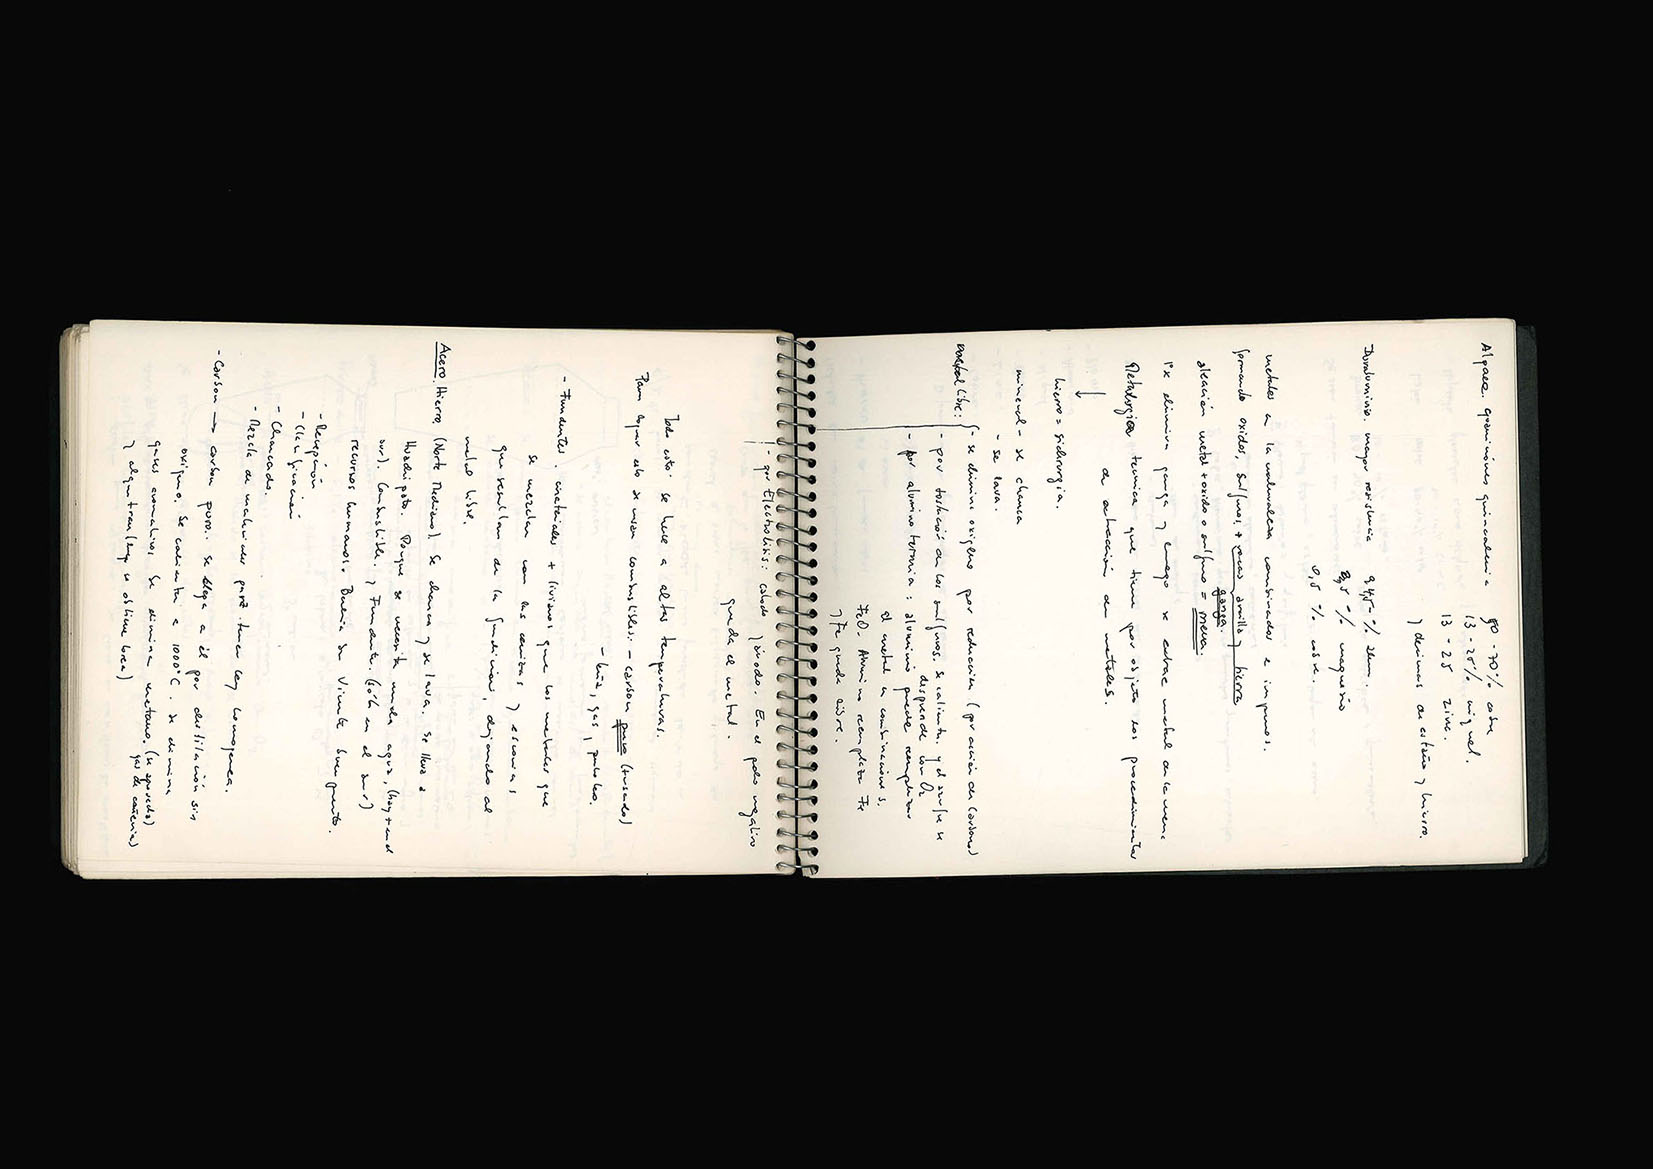 Alpaca.
50 - 70% cobre
13 - 25% niquel.
13 - 25 zinc.
y decimas de estaño y hierro.
Duraluminio. mayor resistencia
% magnesio
0,5 % cobre.
metales en la naturaleza combinados e impuros.
formando oxidos, sulfuros, + rocas arcilla y tierra
ganga.
aleación metal + oxido o sulfuro = mena.
se elimina ganga y luego se extrae metal de la mena
Metalurgia tecnica que tiene por objeto los procedimientos
de extracción de metales.
↓
hierro = siderurgia.
mineral - se chanca
- se lava.
metal libre: - se elimina oxigeno por reducción (por acción del carbono)
- por tostación de los sulfuros. se calienta y el azufre se
desprende con O2
- por alumino termia: aluminio puede remplazar
el metal en combinaciones.
FeO. Alumino reemplaza Fe
y Fe queda libre.
- por Electrolisis: catodo y anodo. En el polo negativo
queda el metal.
Todo esto se hace a altas temperaturas.
Para lograr esto se usan combustibles. - carbon puro (tostado)
- leña, gas, petroleo.
- Fundentes. materiales + livianos que los metales que
se mezclan con las cenizas y escorias
que resultan de la fundición, dejando al
metal libre.
Acero. Hierro (Norte Mediano) se chanca y se lava. Se lleva a
Huachipato. Porque se necesita mucha agua, (hay + en el
sur). Combustible. y Fundente. (sólo en el sur)
recursos humanos. Bahía San Vicente buen puerto.
- Recepción
- Clasificación
- Chancado.
- Mezcla de materiales para tener ley homogenea.
- Carbon → carbon puro. Se llega a él por destilación sin
oxigeno. Se calienta a 1000°C. se elimina
gases aromaticos se elimina metano, (se aprovecha)
y alquitran (luego se obtiene brea) gas de cañeria)